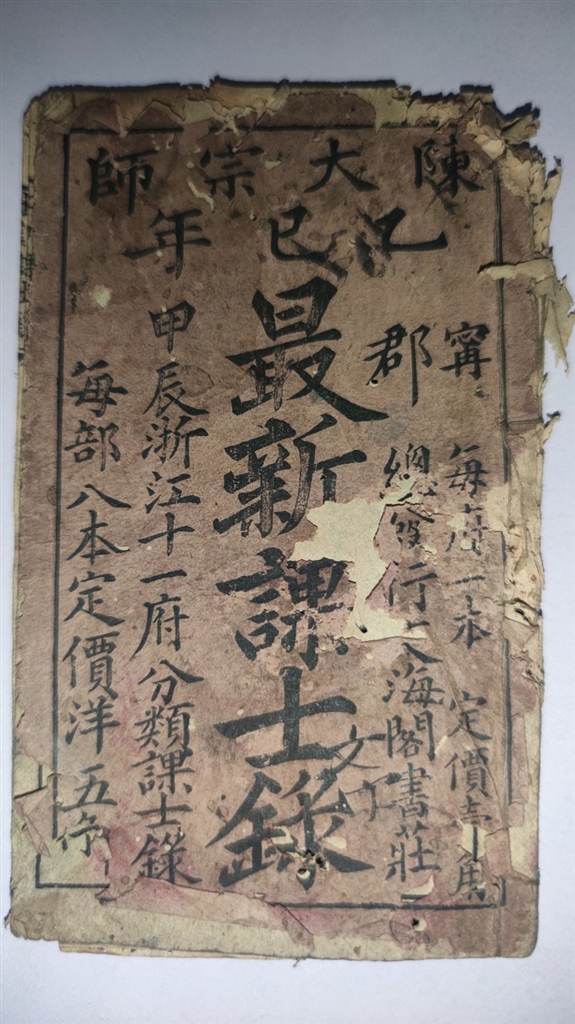 陳大宗師
乙巳年
寗郡
每府一本 定價壹角
總發行文海閣書莊
最新課士錄
甲辰浙江十一府分類課士錄
每部八本定價洋五角